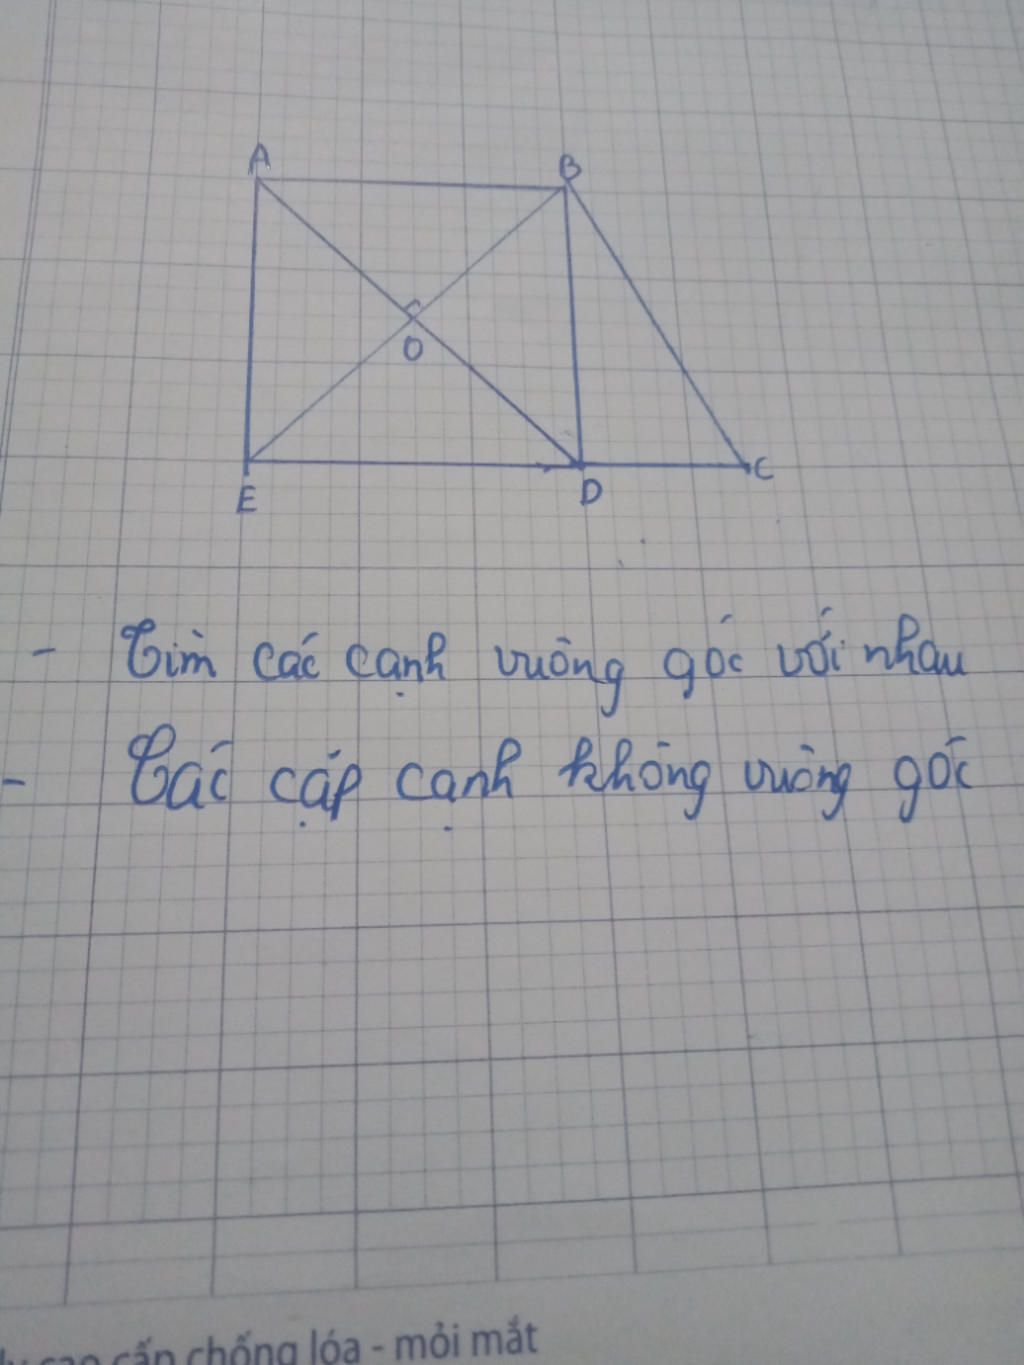 A B
O
E D C
- Tìm các cạnh vuông góc với nhau
- Các cặp cạnh không vuông góc
cao cấp chống lóa - mỏi mắt